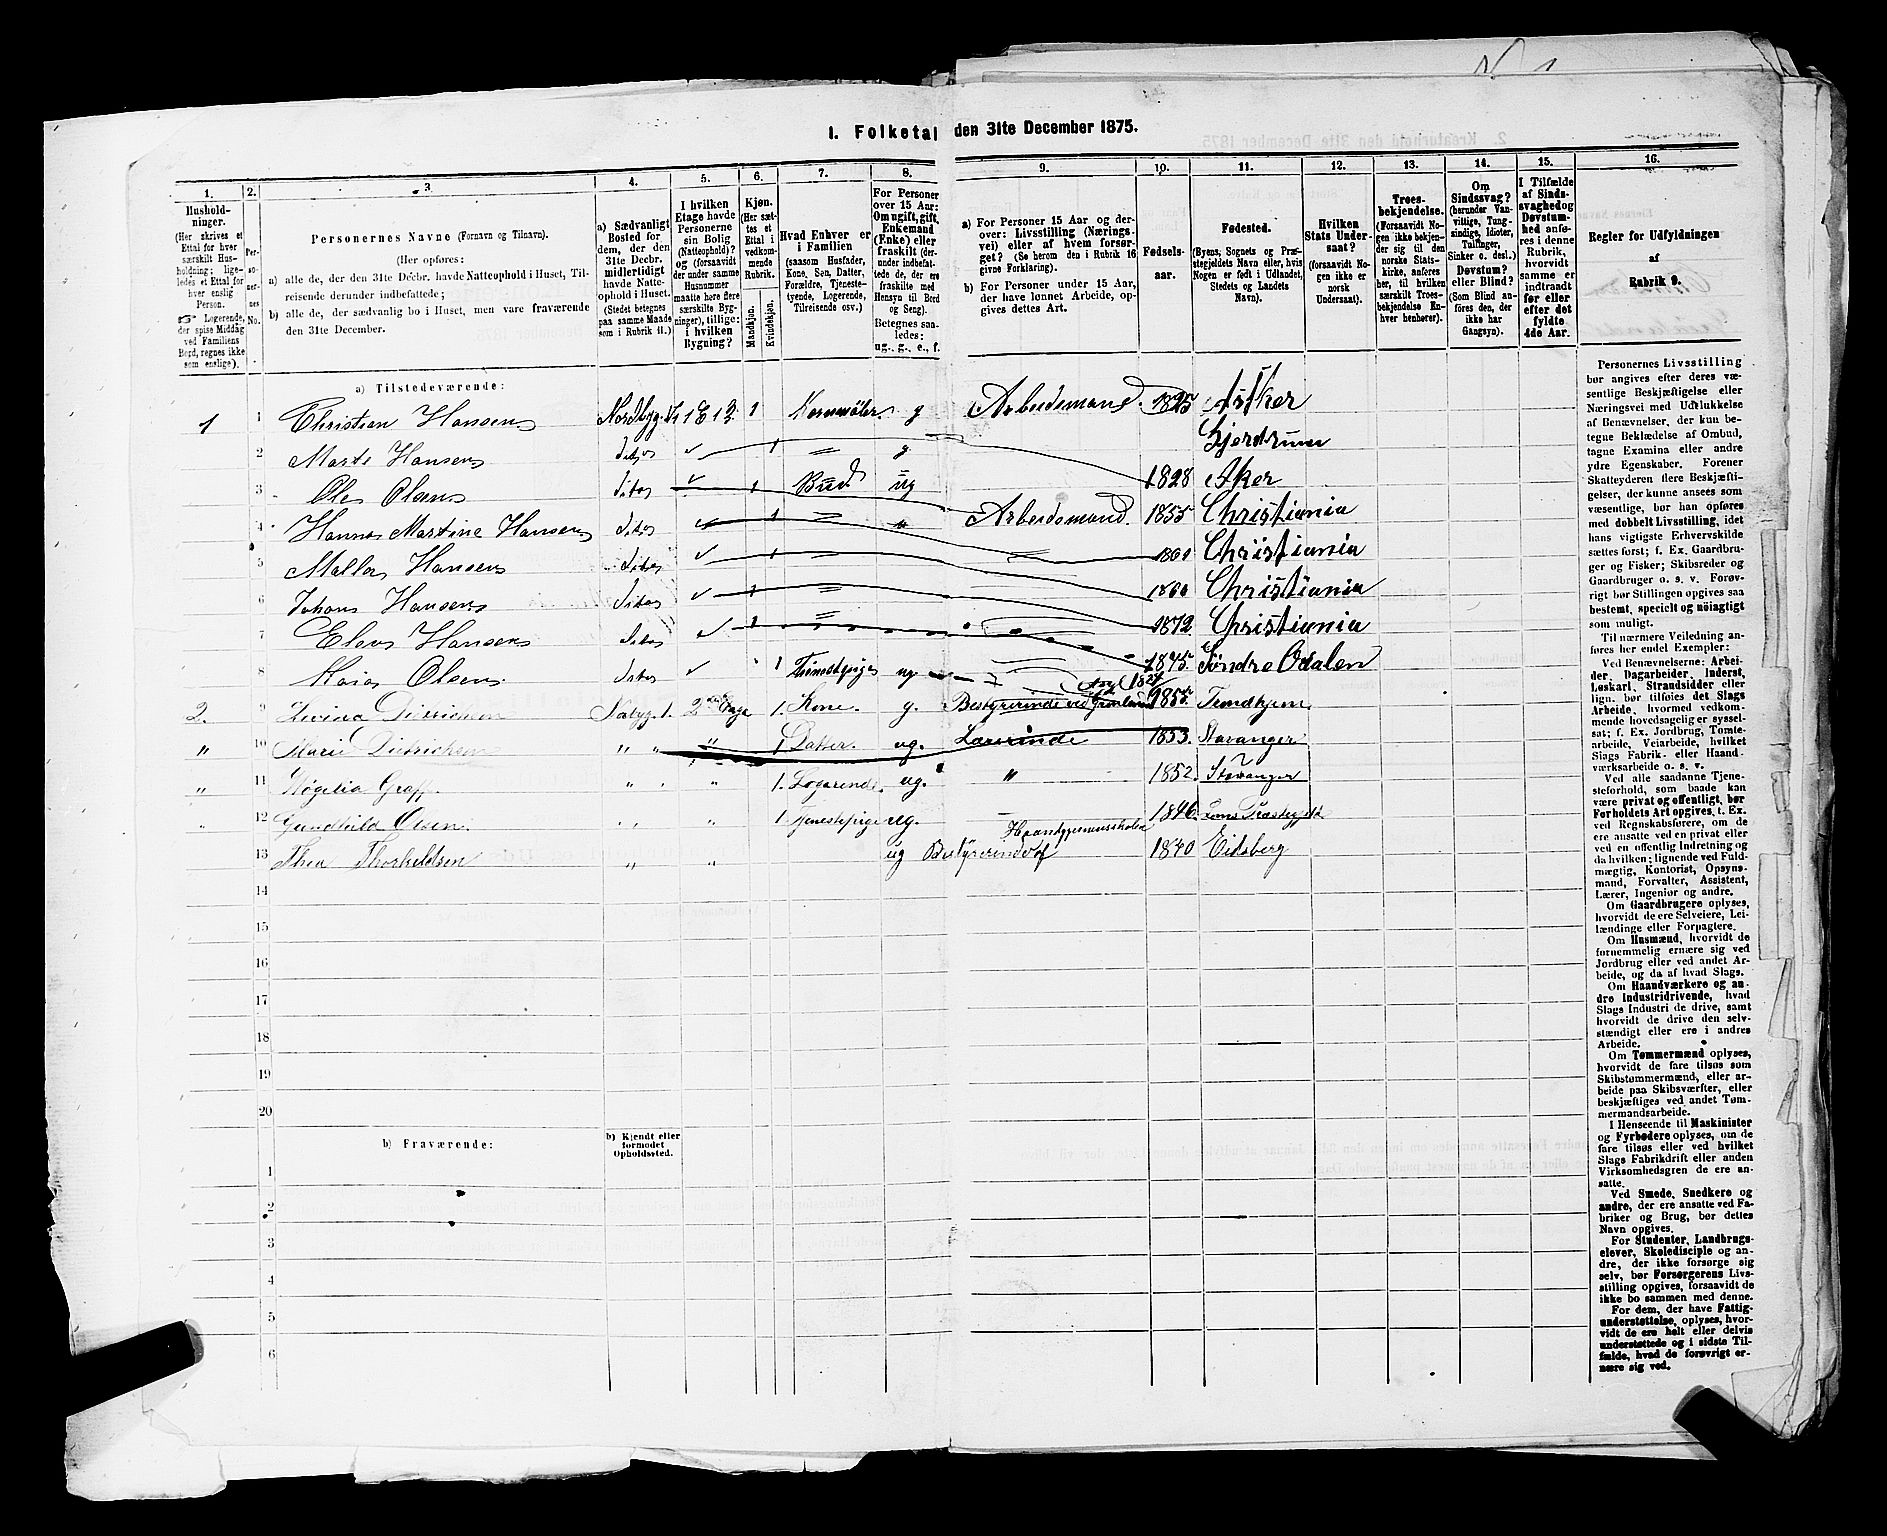 N 1
1. Folketal den 31te December 1875.
1. 2. 3. 4. 5. 6. 7. 8. 9. 10. 11. 12. 13. 14. 15. 16.
Husholdninger.
(Her skrives et
Ettal for hver
særskilt Husholdning;
ligeledes et Ettal for
hver enslig
Person.
Logerende,
der spise Middag
ved Familiens
Bord, regnes ikke
som enslige).
Personernes No.
Personernes Navne (Fornavn og Tilnavn).
(Her opføres:
a) alle de, der den 31te Decbr. havde Natteophold i Huset, Tilreisende derunder indbefattede;
b) alle de, der sædvanlig bo i Huset, men vare fraværende
den 31te December.
a) Sædvanligt
Bosted for
dem, der den
31te Decbr.
midlertidigt
havde Natteophold i Huset.
(Stedet betegnes
paa samme Maade
som i Rubrik 11.)
I hvilken
Etage havde
Personerne
sin Bolig
(Natteophold)?
og (forsaavidt
der under samme
Husnummer
maatte høre flere
særskilte Bygninger), tillige:
i hvilken
Bygning?
Kjøn.
(Her sættes et
Ettal i
vedkommende
Rubrik.
Mandkjøn.
Kvindekjøn.
Hvad Enhver er
i Familien
(saasom Husfader,
Kone, Søn, Datter,
Forældre, Tjenestetyende, Logerende,
Tilreisende osv.)
For Personer
over 15 Aar:
Om ugift, gift,
Enkemand
(Enke) eller
fraskilt (derunder indbefattede de, der ere
fraskilte med
Hensyn til Bord
og Seng).
Betegnes saaledes:
ug., g., e., f.
a) For Personer 15 Aar og derover: Livsstilling (Næringsvei) eller af hvem forsørget? (Se herom den i Rubrik 16
givne Forklaring).
b) For Personer under 15 Aar,
der have lønnet Arbeide, opgives dettes Art.
Fødselsaar.
Fødested.
(Byens, Sognets og Præstegjeldets Navn eller, hvis
Nogen er født i Udlandet,
Stedets og Landets
Navn).
Hvilken
Stats Undersaat?
(forsaavidt Nogen ikke er
norsk
Undersaat).
Troesbekjendelse.
(Forsaavidt Nogen ikke bekjender sig til den
norske Statskirke, anføres
her, til hvilken
særskilt Troesbekjendelse Enhver henhører).
Om
Sindssvag?
(herunder Vanvittige, Tungsindige, Idioter,
Tullinger,
Sinker o. desl.)
Døvstum?
eller Blind?
(Som Blind anføres den, der
ikke har
Gangsyn).
I Tilfælde
af Sindssvaghed og
Døvstumhed anføres i denne
Rubrik,
hvorvidt
samme er
indtraadt
før eller
efter det
fyldte
4de Aar.
Regler for Udfyldningen
af
Rubrik 9.
a) Tilstedeværende:
1 1 Christian Hansen Nordbyg. 1 E 1 2 1 g Arbeidsmand. 1825 Asker
2 Marte Hansen Ditos 1 g 1828 Gjerdrum
3 Ole Olsen Ditos 1 ug Arbeidsmand. 1855 Aker
4 Hanna Martine Hansen Ditos 1 Christiania
5 Hansen Ditos 1 1860 Christiania
6 Johan Hansen Ditos 1 1872 Christiania
7 Hansen Ditos 1 Christiania
8 Olsen Ditos 1 ug 1845 Søndre Odalen
2. 9 1. Kone. g. Bestyrerinde ved Grønland 1827 Trondhjem
" 10 Marie Dietrichsen " " " 1 Datter. ug. Lærerinde 1853. Stavanger
" 11 Graff " " 1. Logerende. ug. " 1852. Stavanger
12 Gundhild Olsen. " " 1 Tjenestepige ug. 1846.
13 Thea Thorkeldsen " " ug Bestyrerinde af Haandgjerningsskolen 1840 Eidsberg
14
15
16
17
18
19
20
b) Fraværende:
b) Kjendt eller
formodet
Opholdssted.
1
2
3
4
5
6
Personernes Livsstilling
bør angives efter deres væsentlige Beskjæftigelse eller
Næringsvei med Udelukkelse
af Benævnelser, der kun betegne Beklædelse af Ombud,
tagne Examina eller andre
ydre Egenskaber. Forener
Skatteyderen flere Beskjæftigelser, der kunne ansees som
væsentlige, bør han opføres
med dobbelt Livsstilling, idet
hans vigtigste Erhvervskilde
sættes først; f. Ex. Gaardbruger og Fisker; Skibsreder og
Gaardbruger o. s. v. Forøvrigt bør Stillingen opgives saa
bestemt, specielt og nöiagtigt
som muligt.
Til nærmere Veiledning anføres her endel Exempler:
Ved Benævnelserne: Arbeider, Dagarbeider, Inderst,
Løskarl, Strandsidder eller
lign. bør tilføies det Slags
Arbeide, hvormed vedkommende hovedsagelig er sysselsat; f. Ex. Jordbrug, Tomtearbeide, Veiarbeide, hvilket
Slags Fabrik- eller Haandværksarbeide o. s. v.
Ved alle saadanne Tjenesteforhold, som baade kan
være privat og offentligt, bør
Forholdets Art opgives, t. Ex.
ved Regnskabsførere, om de
ere ansatte ved en privat eller
ved en offentlig Indretning og
da hvilken; lignende ved Fuldmægtig, Kontorist, Opsynsmand, Forvalter, Assistent,
Lærer, Ingeniør og andre.
Om Gaardbrugere oplyses,
hvorvidt de ere Selveiere, Leilændinge eller Forpagtere.
Om Husmænd, hvorvidt de
fornemmelig ernære sig ved
Jordbrug eller ved andet Arbeide, og da af hvad Slags.
Om Haandværkere og andre Industridrivende, hvad
Slags Industri de drive, samt
hvorvidt de drive den selvstændigt eller ere i andres
Arbeide.
Om Tømmermænd oplyses,
hvorvidt de fare tilsøs som
Skibstømmermænd, eller arbeide paa Skibsværfter, eller
beskjæftiges ved andet Tømmermandsarbeide.
I Henseende til Maskinister
og Fyrbødere oplyses, om de
fare tilsøs eller ved hvilket
Slags Fabrikdrift eller anden
Virksomhedsgren de ere ansatte.
Ved Smede, Snedkere og
andre, der ere ansatte ved Fabriker og Brug, bør dettes
Navn opgives.
For Studenter, Landbrugselever, Skoledisciple og andre, der ikke forsørge sig
selv, bør Forsørgerens Livsstilling opgives, forsaavidt de
ikke bo sammen med denne.
For dem, der have Fattigunderstøttelse, oplyses, hvorvidt de ere helt eller delvis
understøttede og i sidste Tilfælde, hvad de forøvrigt ernære sig ved.